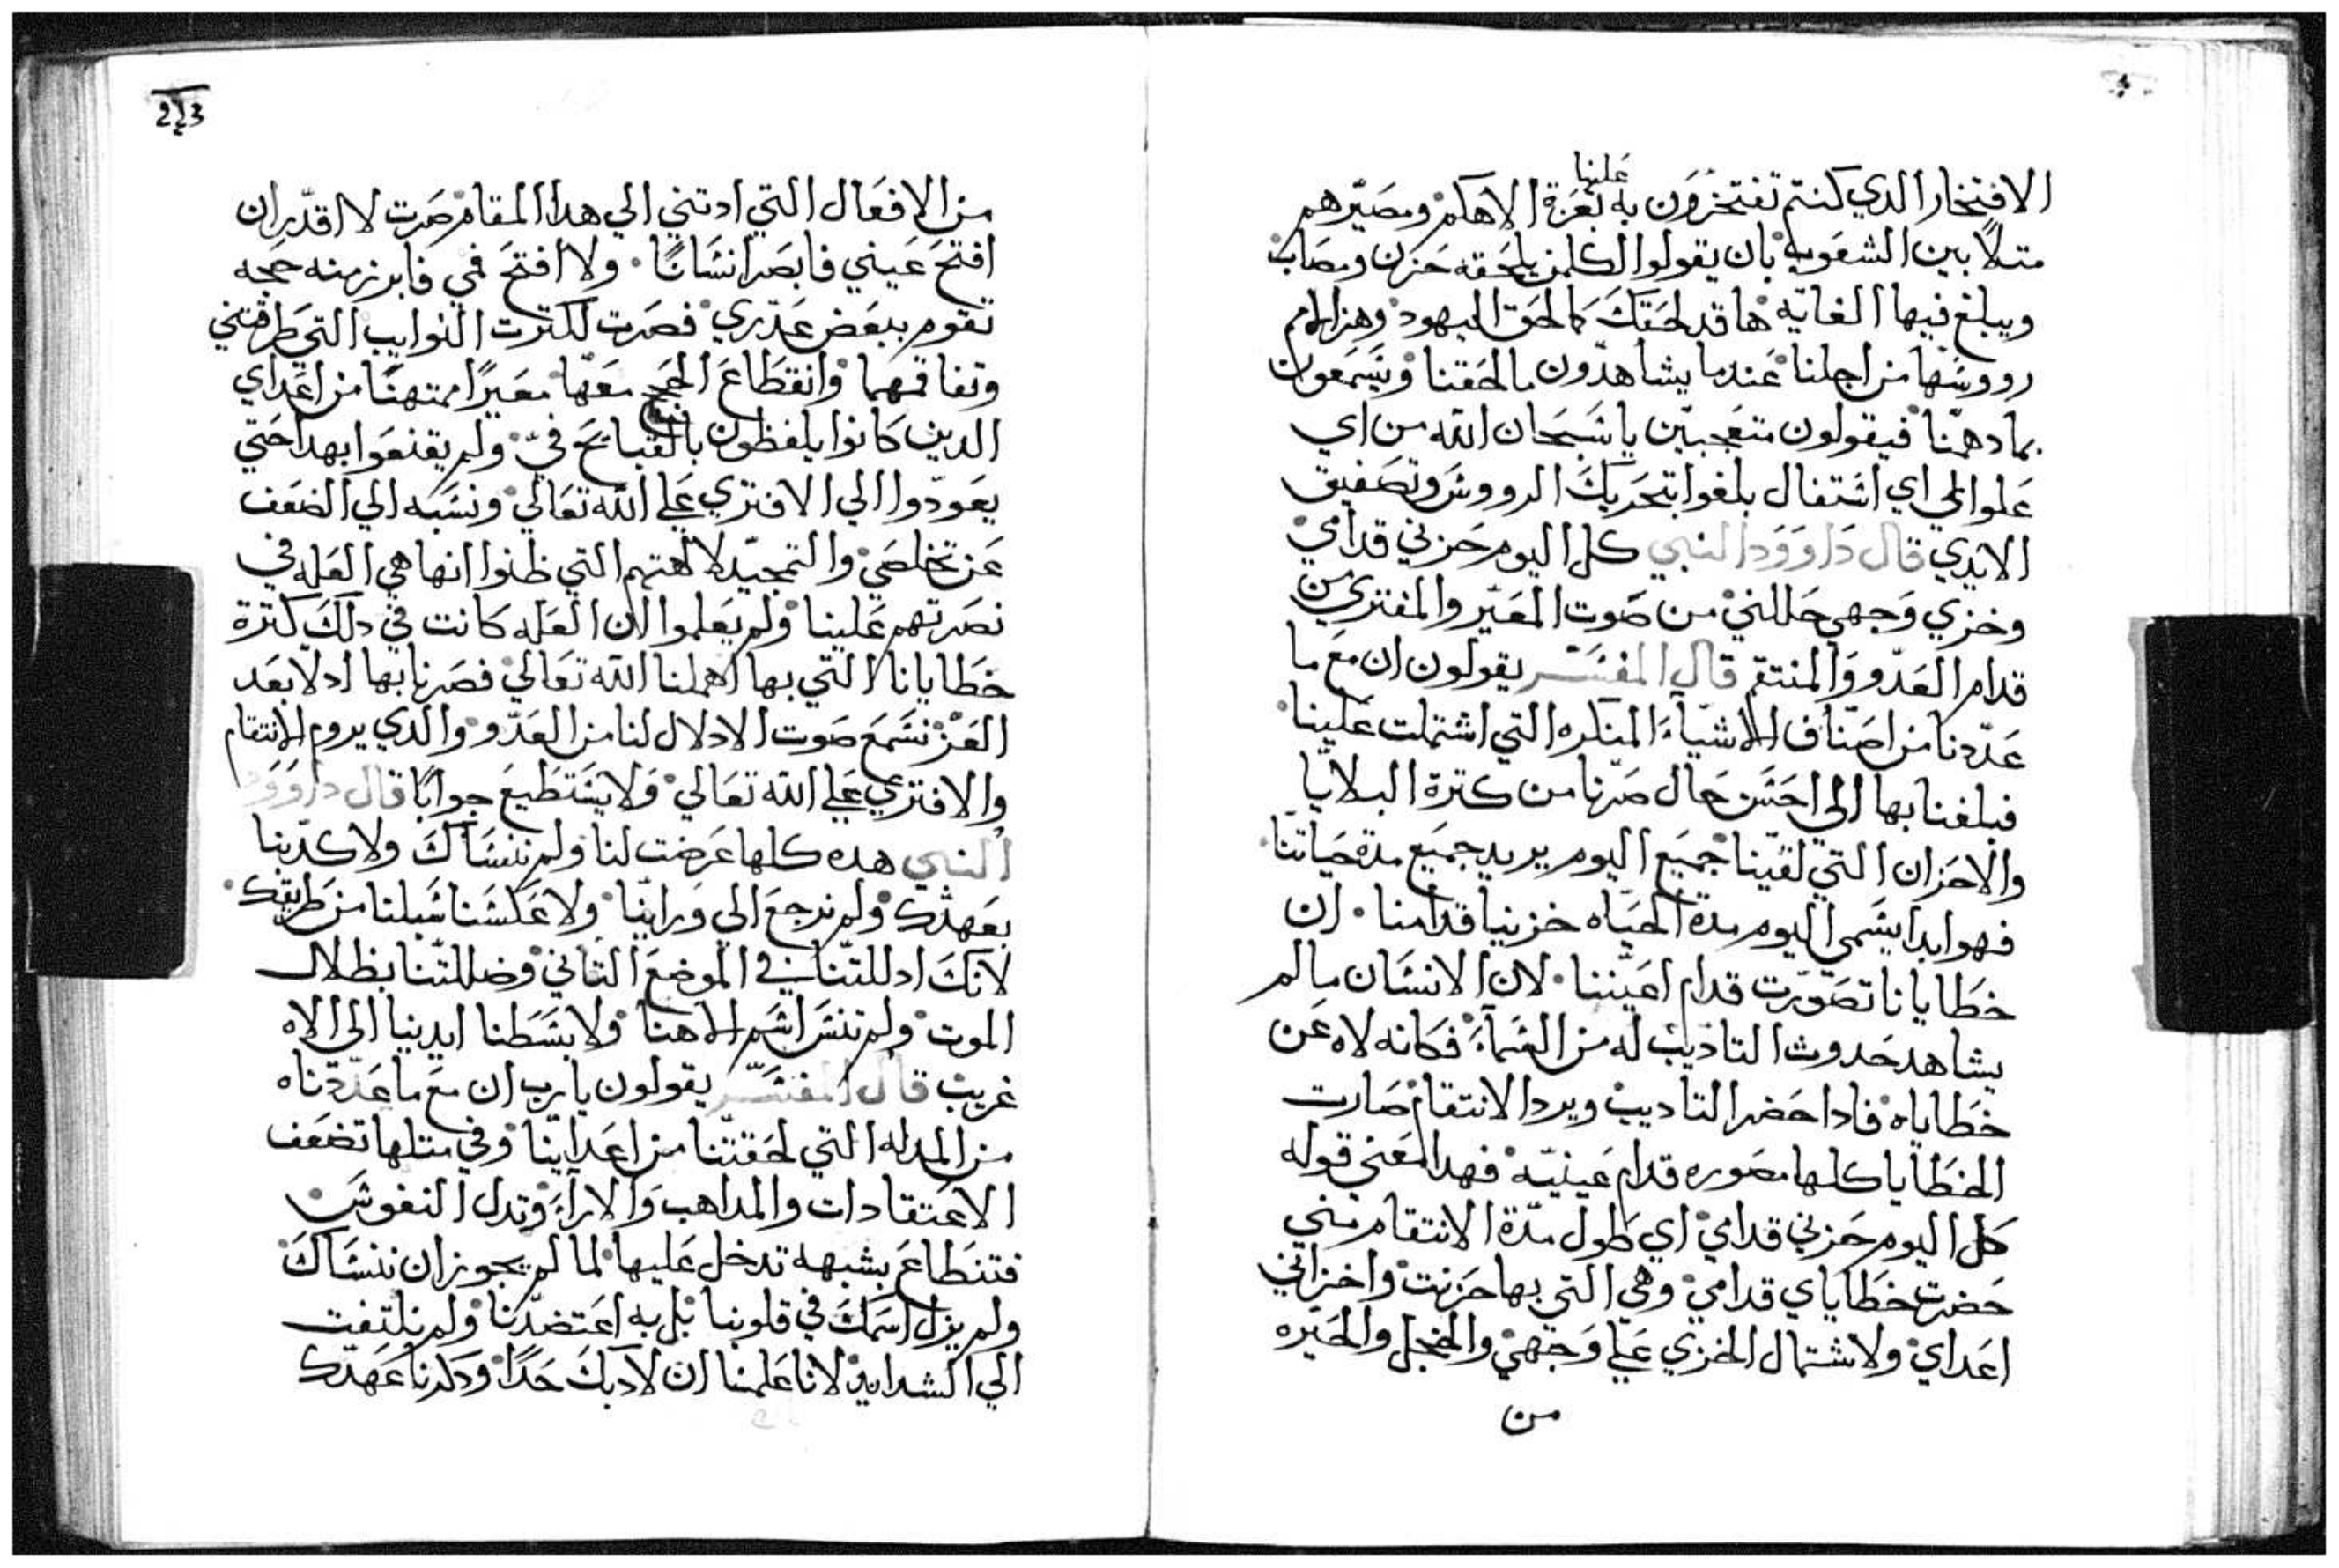 علينا
الافتخار الدي كنتم تفتخرون به بعزة الاهكم ومصيرهم
متلًا بين الشعوب بان يقولوا لكلمن يلحقه حزن ومصاب
ويبلغ فيها الغايه ها قد لحقك كما لحق اليهود وهز الامم
رووسها من اجلنا عندما يشاهدون ما لحقنا ويسمعون
بما دهمنا فيقولون متعجبين يا سبحان الله من اي
علوا الي اي استفال بلغوا بتحريك الرووس وتصفيق
الايدي قال داوود النبي كل اليوم حزني قدامي
وخزي وجهي جللني من صوت المعير والمفتري من
قدام العدو والمنتقم قال المفسر يقولون ان مع ما
عددنا من اصناف الاشياء المنكره التي اشتملت علينا
فبلغنا بها الي احسن حال صرنا من كترة البلايا
والاحزان التي لقينا جميع اليوم يريد جميع مدة حياتنا
فهو ابدا يسمي اليوم مدة الحياه خزينا قدامنا ان
خطايانا تصورت قدام اعيننا لان الانسان ما لم
يشاهد حدوث التاديب له من السماء فكانه لاه عن
خطاياه فادا حضر التاديب ويرد الانتقام صارت
الخطايا كلها مصوره قدام عينيه فهدا معني قوله
كل اليوم حزني قدامي اي طول مدة الانتقام مني
حضرت خطاياي قدامي وهي التي بها حزنت واخزاني
اعداي ولاشتمال الخزي علي وجهي والخجل والحيره
من
223
من الافعال التي ادتني الي هدا المقام صرت لا اقدر ان
افتح عيني فابصر انسانًا ولا افتح فمي فابرز منه حجه
تقوم ببعض عدري فصرت لكترت النوايب التي طرقتني
وتفاقمها وانقطاع الحجج معها معيرًا ممتهنًا من اعداي
الدين كانوا يلفظون بالقبايح فيّ ولم يقنعوا بهدا حتي
يعودوا الي الافتري علي الله تعالي ونسبه الي الضعف
عن تخلصي والتمجيد لالهتهم التي ظنوا انها هي العله في
نصرتهم علينا ولم يعلموا ان العله كانت في دلك كترة
خطايانا التي بها اهملنا الله تعالي فصرنا بها ادلا بعد
العز نسمع صوت الادلال لنا من العدو والدي يروم الانتقام
والافتري علي الله تعالي ولا يستطيع جوابًا قال داوود
النبي هده كلها عرضت لنا ولم ننساك ولا كدبنا
بعهدك ولم نرجع الي وراينا ولا عكسنا سبلنا من طريقك
لانك ادللتنا في الموضع التاني وضللتنا بظلال
الموت ولم ننس اسم الاهنا ولا بسطنا ايدينا الي الاه
غريب قال المفسر يقولون يا رب ان مع ما عددناه
من المدله التي لحقتنا من اعداينا وفي متلها تضعف
الاعتقادات والمداهب والاراء وتدل النفوس
فتنطاع بشبهه تدخل عليها لما لم يجوز ان ننساك
ولم يزل اسمك في قلوبنا بل به اعتضدنا ولم نلتفت
الي الشدايد لانا علمنا ان لادبك حدًا ودكرنا عهدك